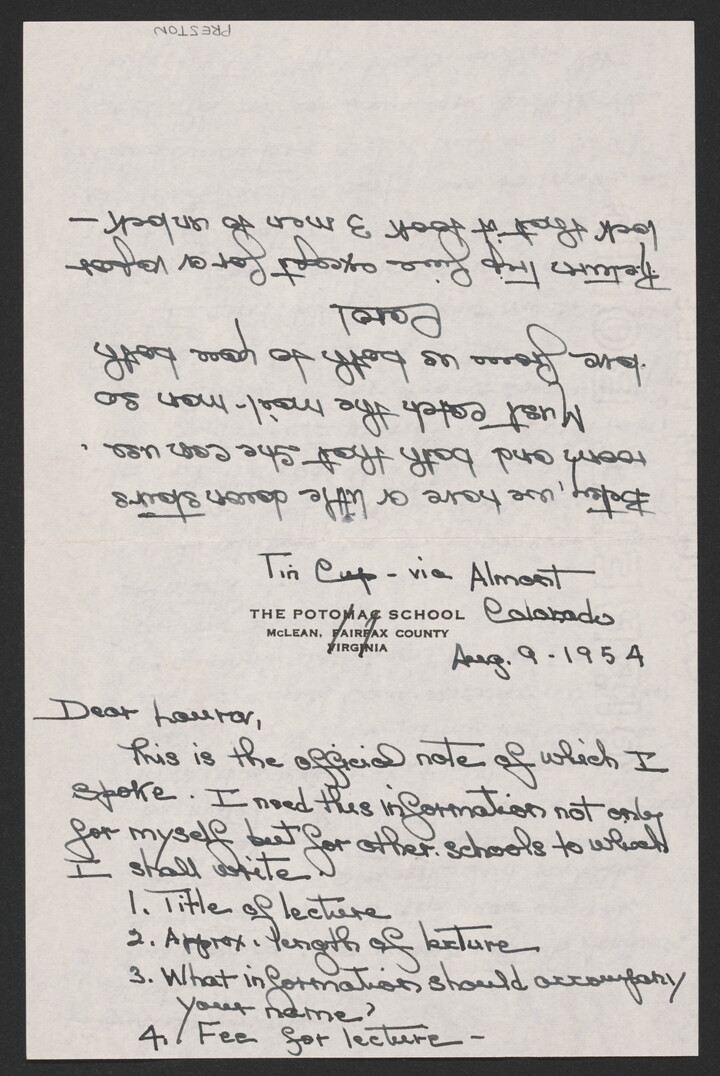 Tin Cup - via Almont
Colorado
THE POTOMAC SCHOOL
McLEAN, FAIRFAX COUNTY
VIRGINIA
Aug. 9 - 1954
Dear Laura,
This is the official note of which I
spoke. I need this information not only
for myself but for other schools to which
I shall write.
1. Title of lecture
2. Approx. length of lecture
3. What information should accompany
your name?
4. Fee for lecture -
Betsy, we have a little downstairs
room and bath that she can use.
Must catch the mail-man so
love from us both to you both
Carol
Return trip fine except for a vapor
lock that it took 3 men to unlock —
PRESTON